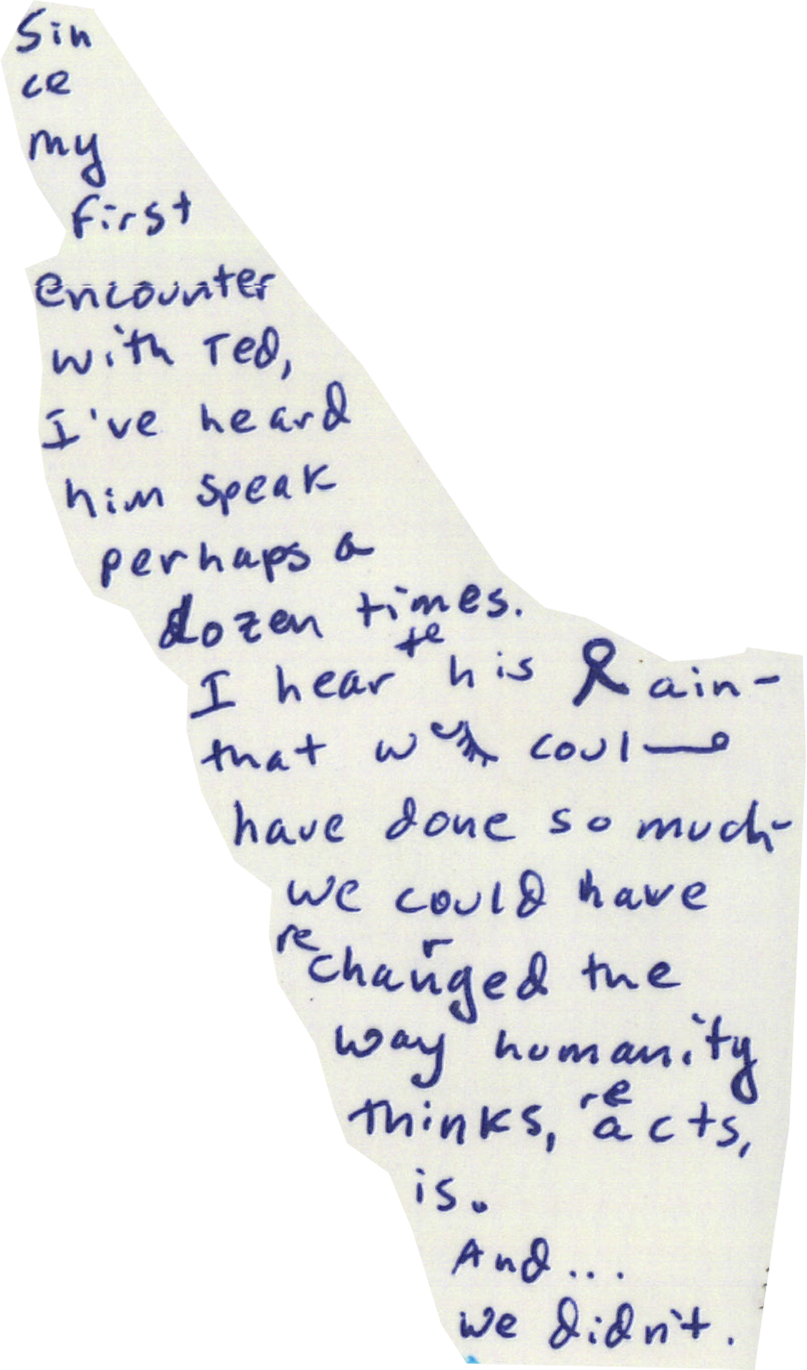 Sin
ce
my
first
encounter
with Ted,
I've heard
him speak
perhaps a
dozen times.
te
I hear his Rain-
that we coul
have done so much-
we could have
re r
changed the
way humanity
re
thinks, acts,
is.
And...
we didn't.